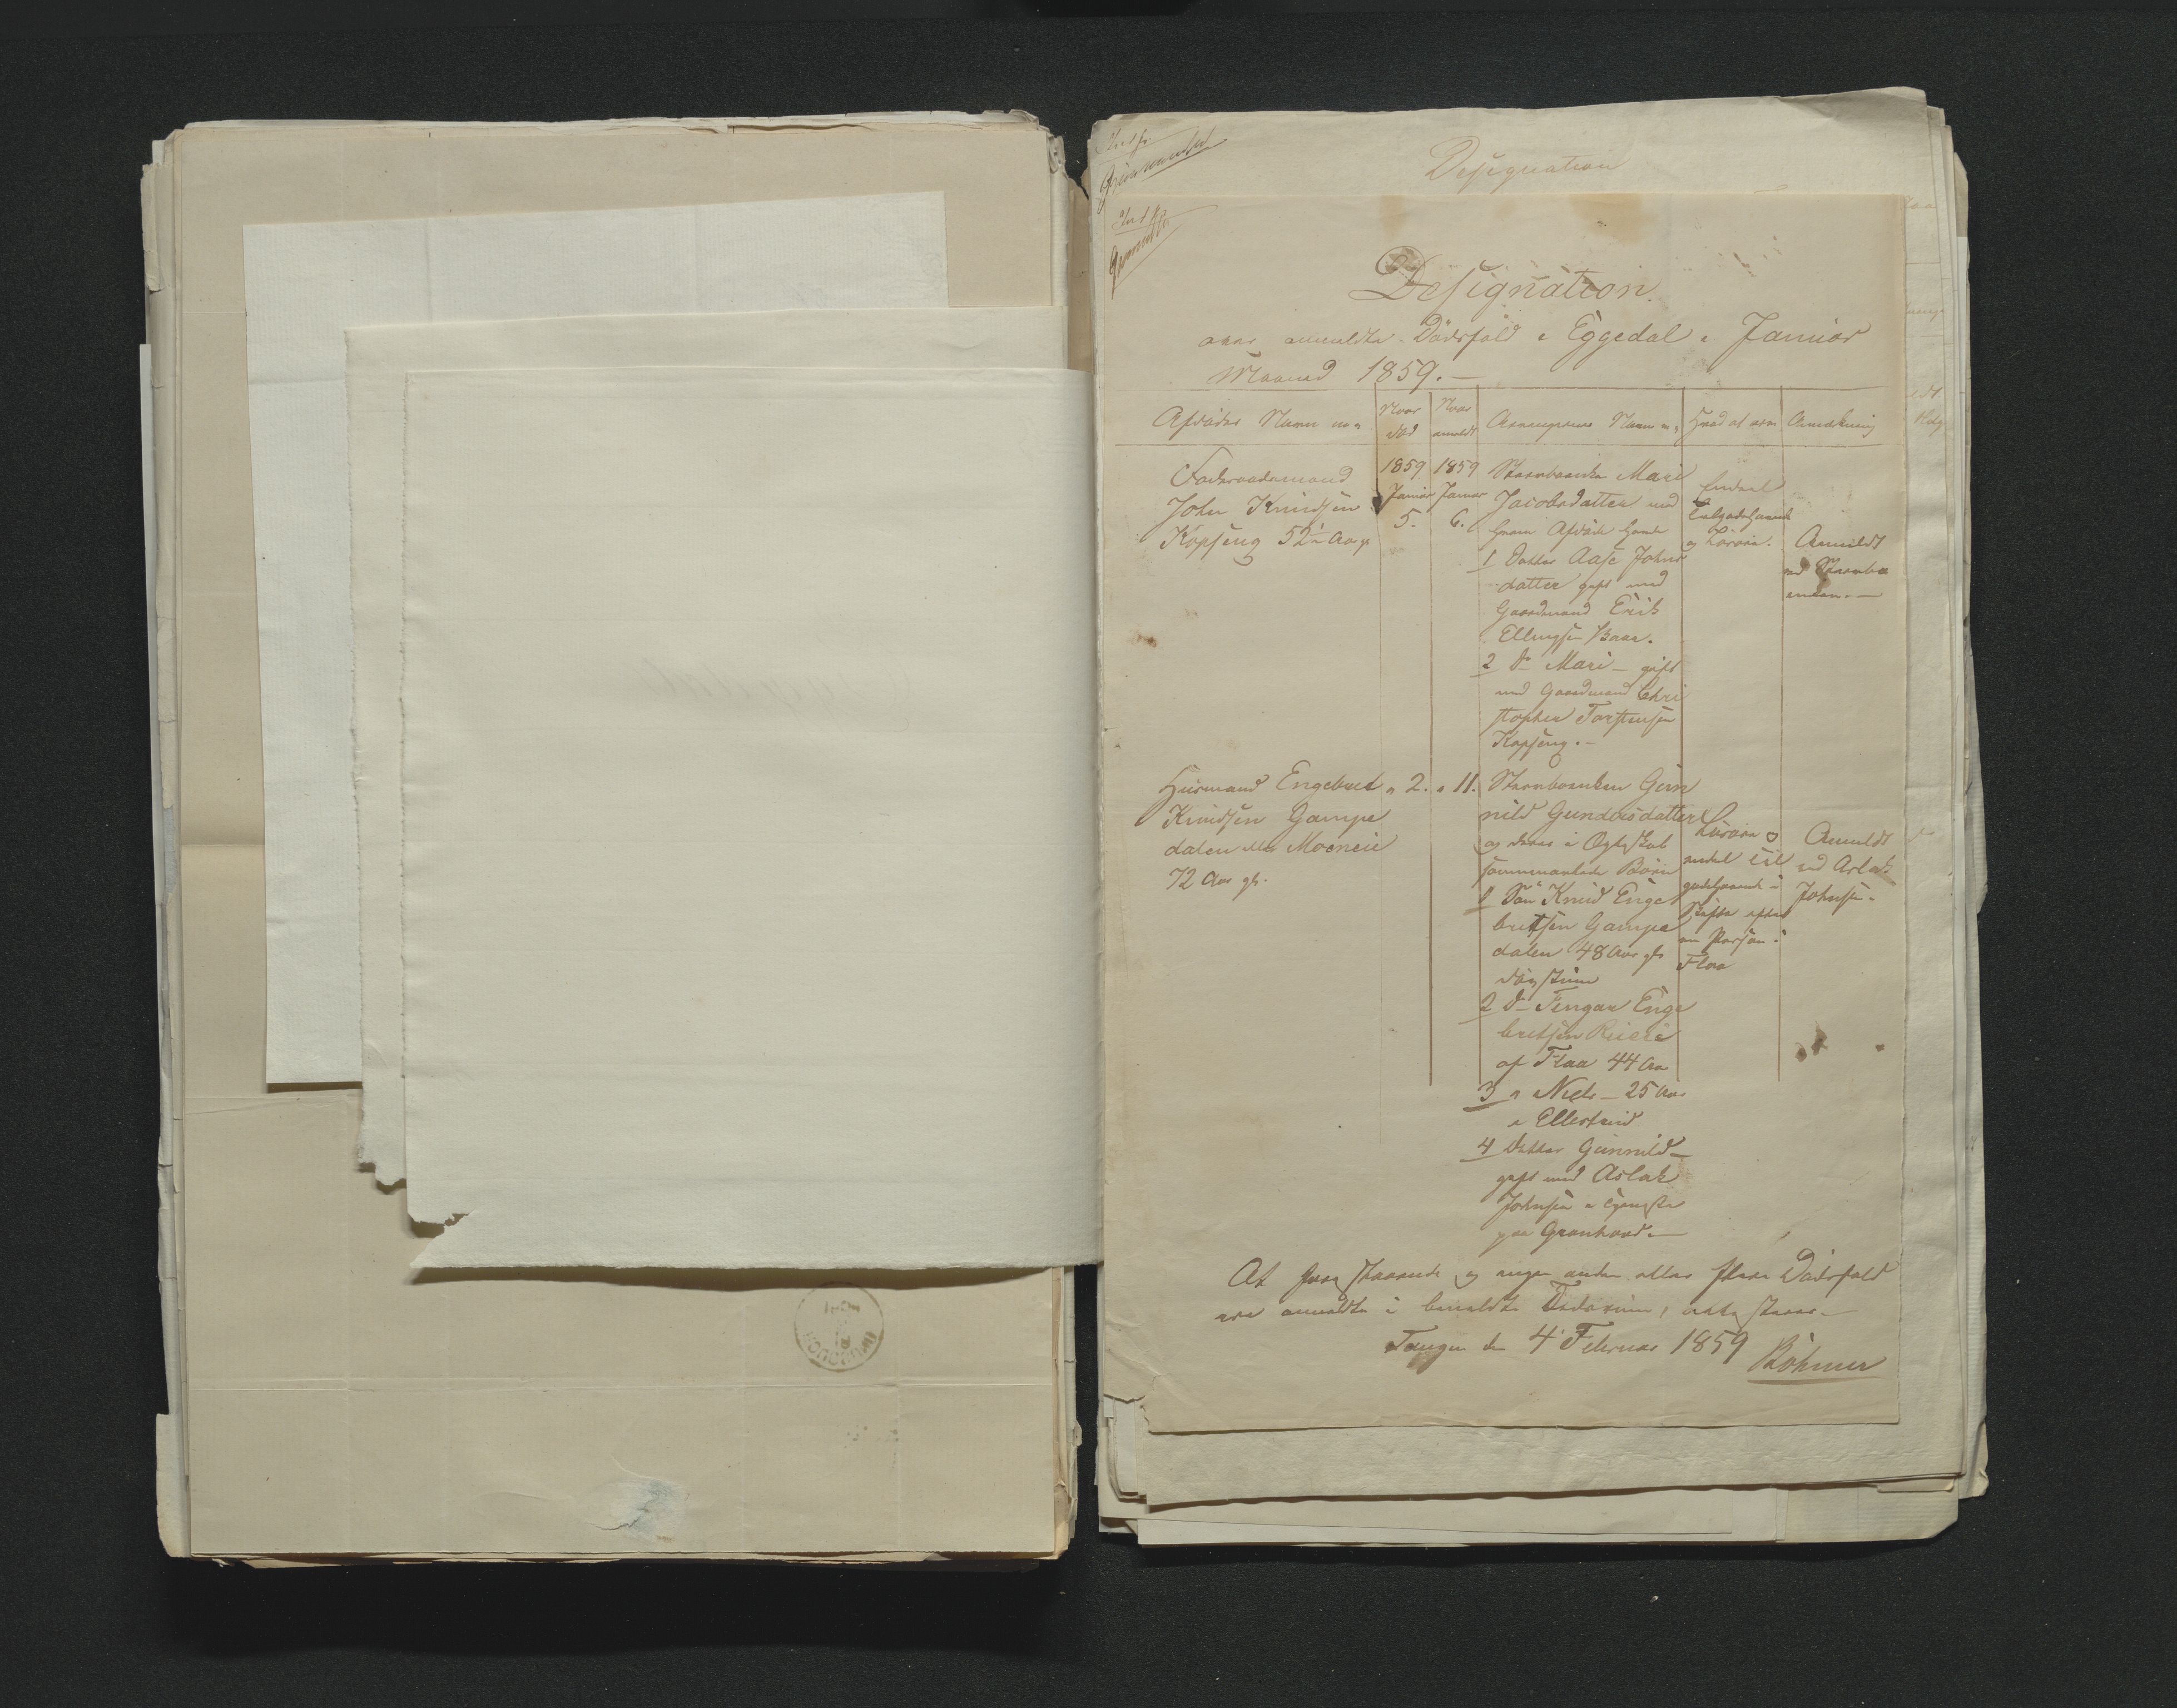 Designation
Designation
over anmeldte Dödsfald i Eggedal i Januar
Maaned 1859.—
Afdödes Navn m.
Naar död
Naar anmeldt
Arvingernes Navn m.
Hvad at arve
Anmærkning
Föderaadsmand
John Knudsen
Kopseng 52 Aar
1859
Januar
5.
1859
Januar
6.
Stervboenken Mari
Jacobsdatter med
hvem Afdöde havde
1 Datter Aase Johns
datter gift med
Gaardmand Erik
Ellingsen Braae.
2 Do Mari – gift
med Gaardmand Chri
stopher Torstensen
Kopseng.–
Endeel
Tilgodehavende
og Lösöre.
Anmeldt
ved Stervbo
enken.—
Huusmand Engebret
Knudsen Gampe
dalen eller Moeneie
72 Aar gl.
" 2.
" 11.
Stervboenken Gun
nild Gundersdatter
og deres i Ægteskab
sammenavlede Börn
1 Sön Knud Enge
bretsen Gampe
dalen 48 Aar gl.
2 Do Fingar Enge
bretsen
af Flaa 44 Aar
3 " Niels – 25 Aar
4 Datter Gunnild –
gift med Aslak
Johnsen
paa Grønhovd.—
Lösöre og
endel Til
godehavende i
Skifte efter
en Person i
Flaa
Anmeldt
ved Aslak
Johnsen.
At foregstaaende og ingen anden eller flere Dödsfald
ere anmeldte i bemeldte Tidsrum, attesteres.—
Tangen den 4 Februar 1859
Böhmer